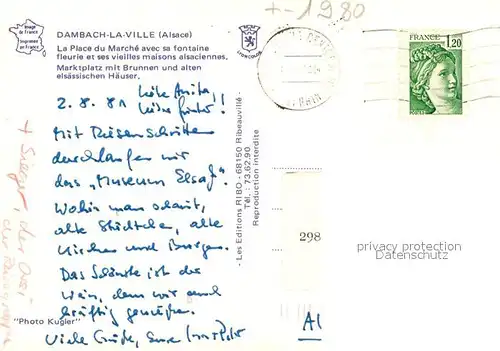 +-1980
Image
de France
Imprimée
en France
DAMBACH-LA-VILLE (Alsace)
La Place du Marché avec sa fontaine
fleurie et ses vieilles maisons alsaciennes.
Marktplatz mit Brunnen und alten
elsässischen Häuser.
LION COLOR
FRANCE
1,20
2.8.81 Liebe Anita,
Mit Riesenschritten
durchlaufen wir
das „Museum Elsaß".
Wohin man schaut,
alte Städtchen, alte
Kirchen und Burgen.
Das Schönste ist der
Wein, den wir auch
kräftig genießen.
Viele Grüße, Eure
- Les Editions RIBO - 68150 Ribeauvillé -
Tél.: 73.62.90
Reproduction interdite
298
privacy protection
Datenschutz
"Photo Kugler"
A1